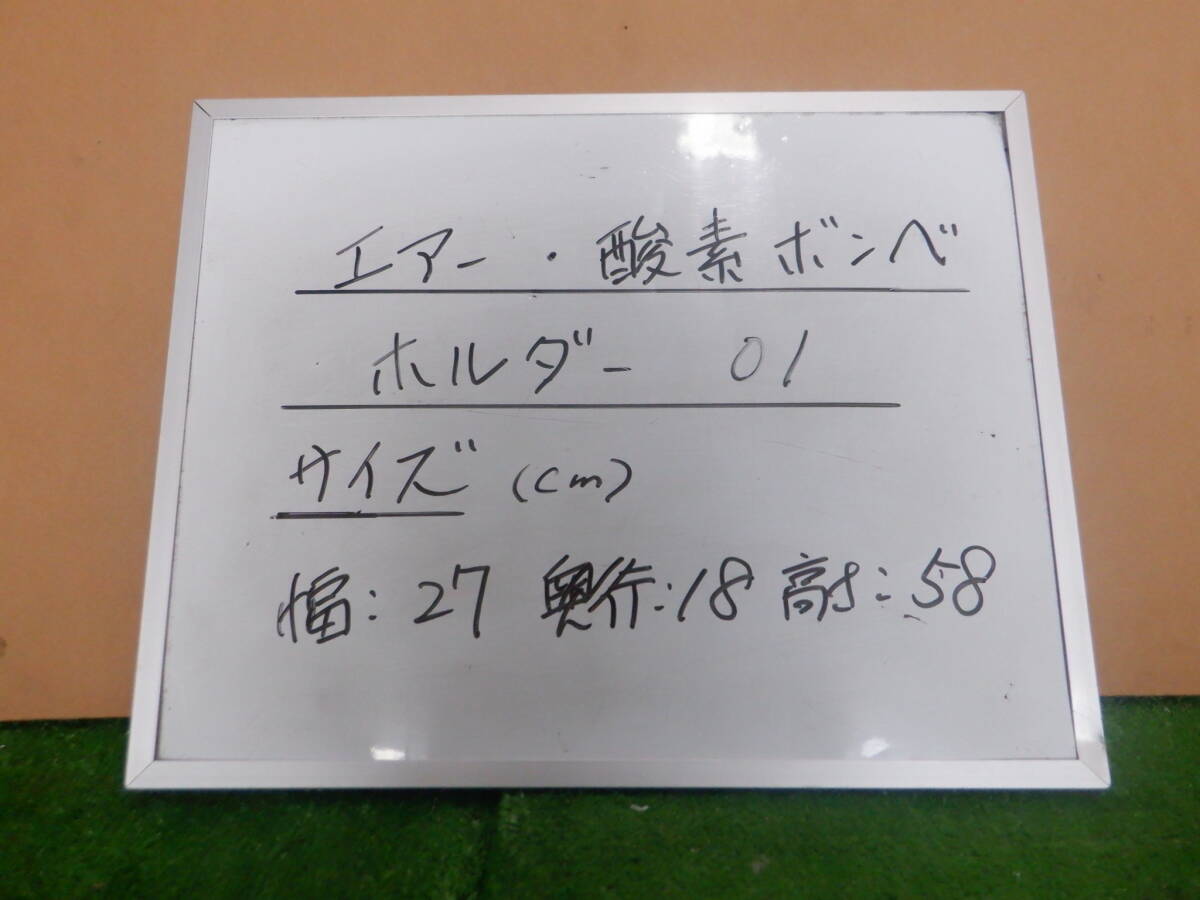 エアー・酸素ボンベ
ホルダー 01
サイズ (cm)
幅:27 奥行:18 高さ:58